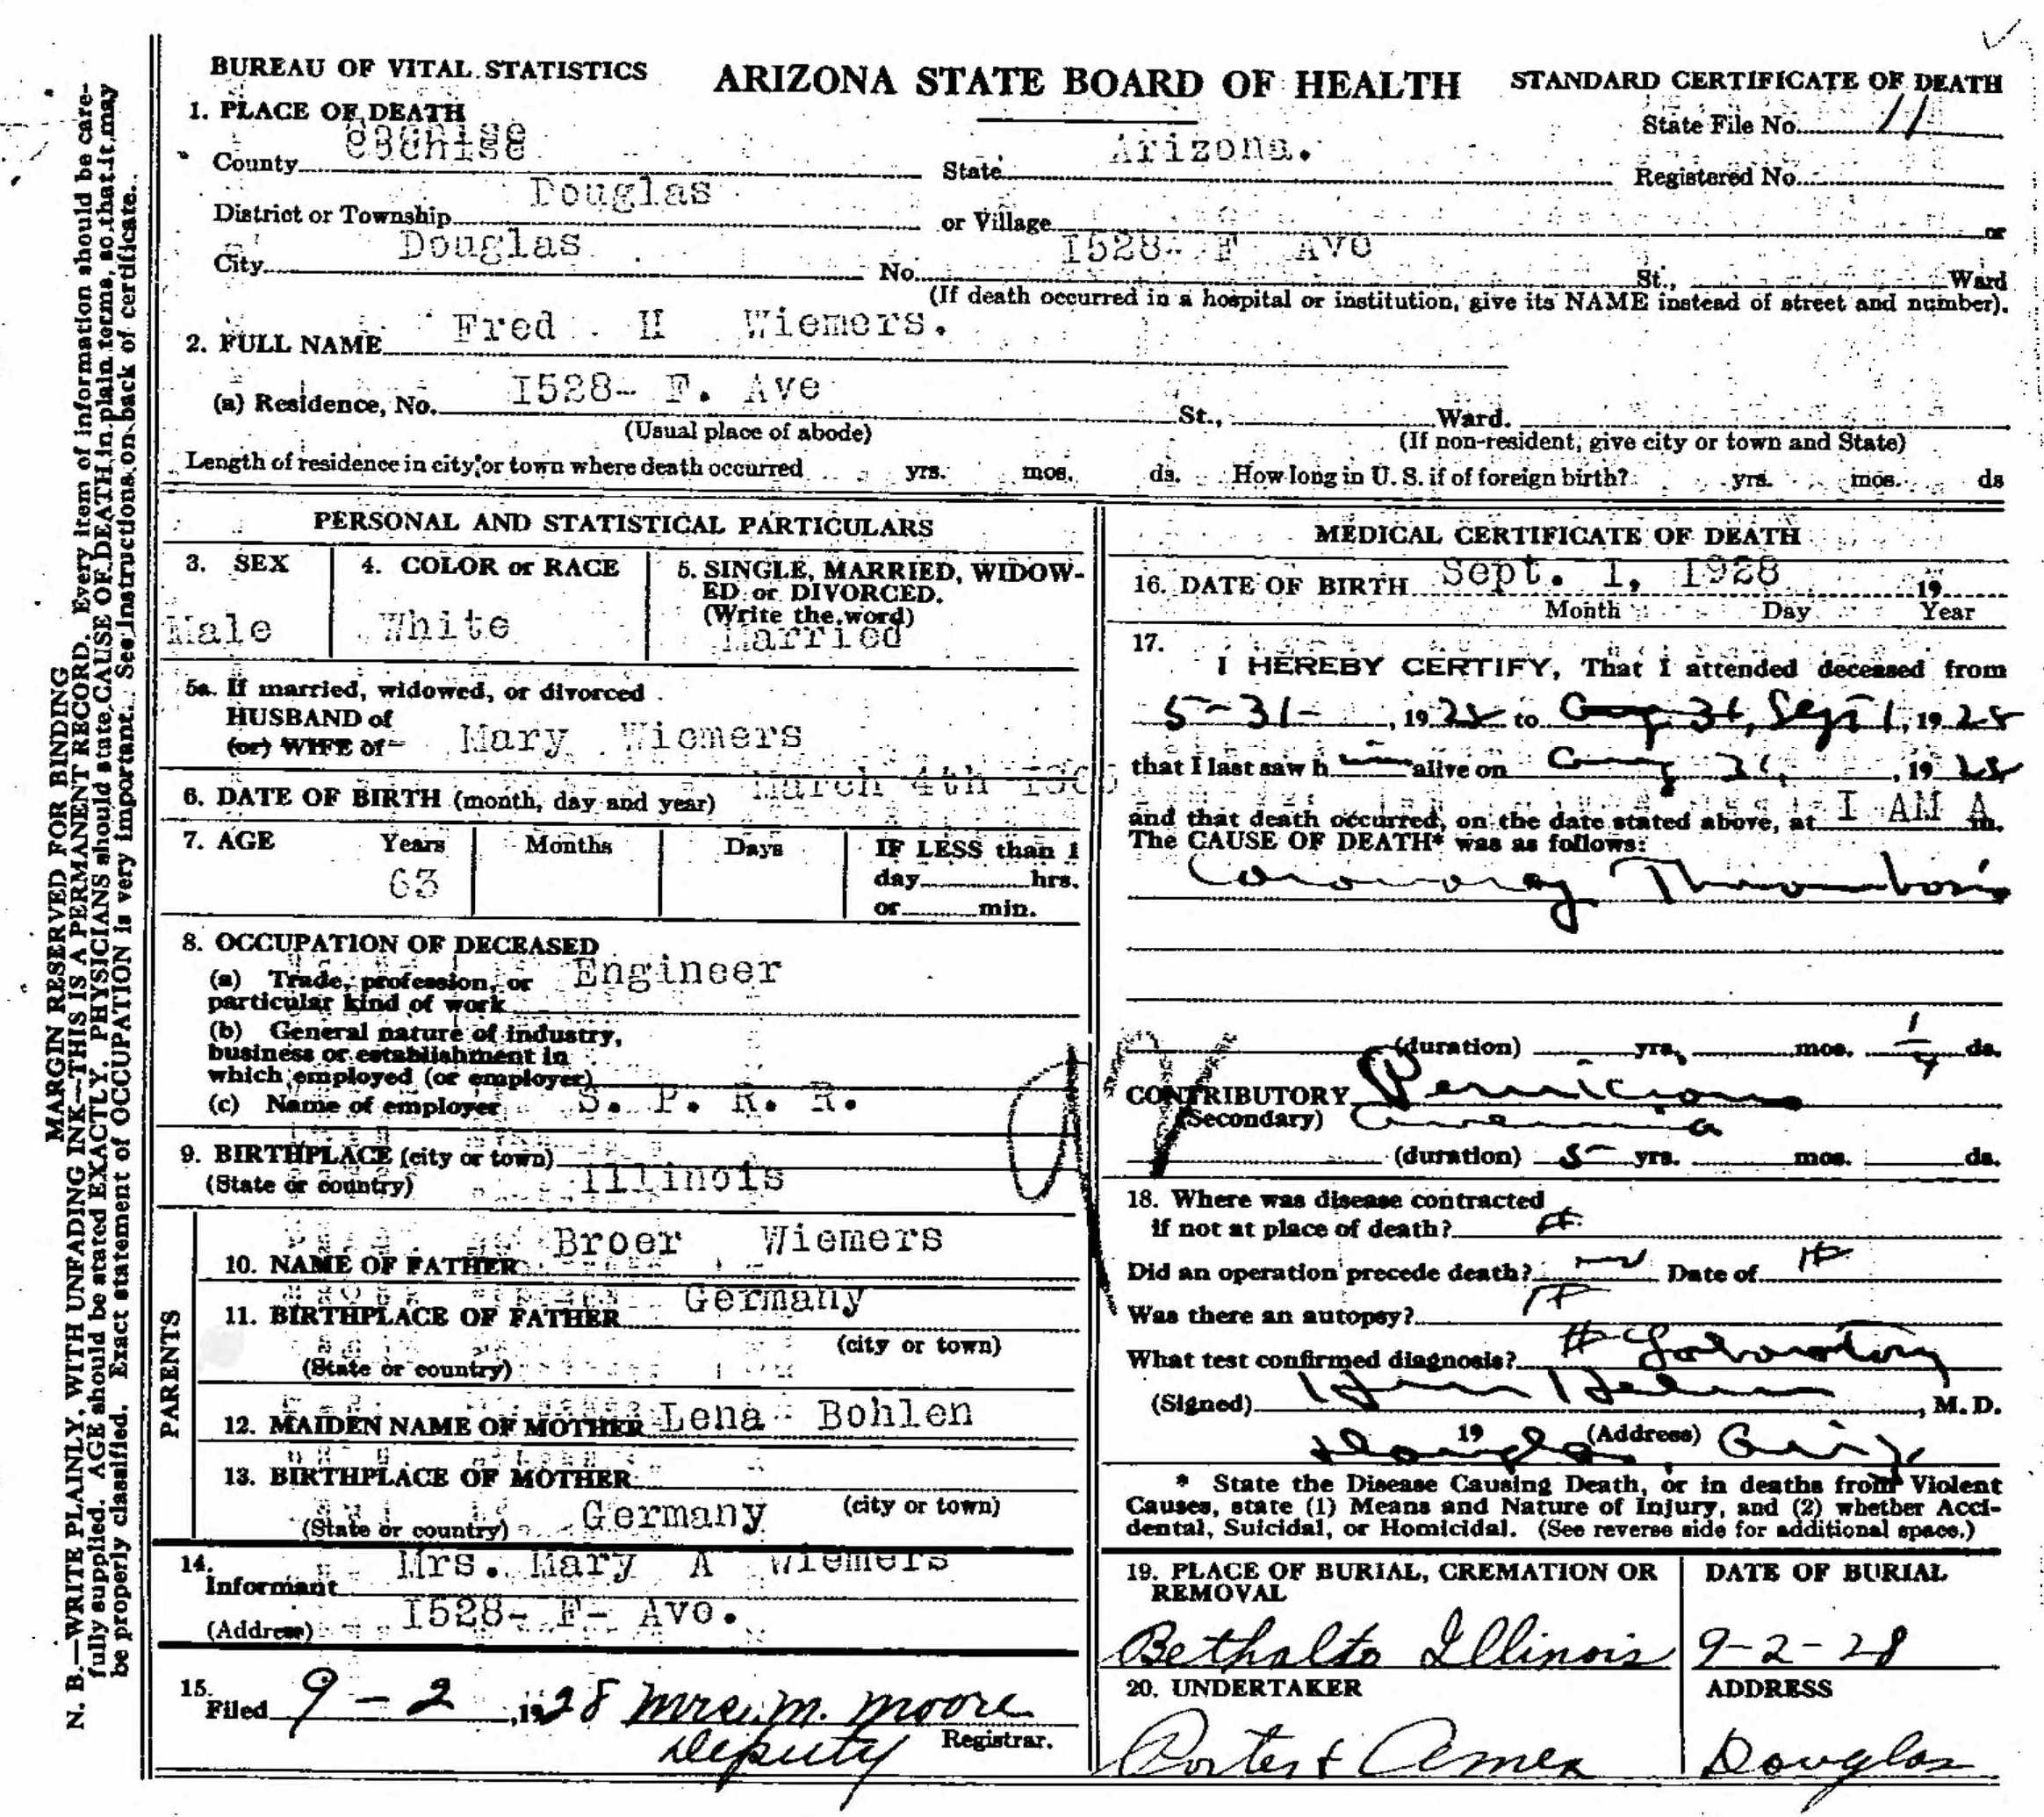 BUREAU OF VITAL STATISTICS
ARIZONA STATE BOARD OF HEALTH
STANDARD CERTIFICATE OF DEATH
State File No. 11
1. PLACE OF DEATH
County Cochise State Arizona. Registered No.
District or Township Douglas or Village or
City Douglas No. 1528- F Ave St., Ward
(If death occurred in a hospital or institution, give its NAME instead of street and number).
2. FULL NAME Fred H Wiemers.
(a) Residence, No. 1528- F. Ave St., Ward.
(Usual place of abode) (If non-resident, give city or town and State)
Length of residence in city or town where death occurred yrs. mos. ds. How long in U. S. if of foreign birth? yrs. mos. ds
PERSONAL AND STATISTICAL PARTICULARS
3. SEX
Male
4. COLOR or RACE
White
5. SINGLE, MARRIED, WIDOW-
ED or DIVORCED.
(Write the word)
Married
5a. If married, widowed, or divorced
HUSBAND of
(or) WIFE of Mary Wiemers
6. DATE OF BIRTH (month, day and year) March 4th
7. AGE Years Months Days IF LESS than 1
63 day hrs.
or min.
8. OCCUPATION OF DECEASED
(a) Trade, profession, or Engineer
particular kind of work
(b) General nature of industry,
business or establishment in
which employed (or employer)
(c) Name of employer S. P. R. R.
9. BIRTHPLACE (city or town)
(State or country) Illinois
PARENTS
10. NAME OF FATHER Broer Wiemers
11. BIRTHPLACE OF FATHER Germany
(city or town)
(State or country)
12. MAIDEN NAME OF MOTHER Lena Bohlen
13. BIRTHPLACE OF MOTHER
(city or town)
(State or country) Germany
14.
Informant Mrs. Mary A Wiemers
(Address) 1528- F- Ave.
15.
Filed 9-2, 1928 Mrs. M. Moore
Deputy Registrar.
MEDICAL CERTIFICATE OF DEATH
16. DATE OF BIRTH Sept. 1, 1928 19
Month Day Year
17.
I HEREBY CERTIFY, That I attended deceased from
5-31-, 1928 to Aug 31, Sept 1, 1928
that I last saw him alive on Aug 31, 1928
and that death occurred, on the date stated above, at 1 AM A m.
The CAUSE OF DEATH* was as follows:
Coronary Thrombosis
(duration) yrs. mos. ds.
CONTRIBUTORY Pernicious
(Secondary) Anemia
(duration) 5 yrs. mos. ds.
18. Where was disease contracted
if not at place of death?
Did an operation precede death? Date of
Was there an autopsy?
What test confirmed diagnosis? Laboratory
(Signed) , M. D.
19 (Address)
Douglas, Ariz.
* State the Disease Causing Death, or in deaths from Violent
Causes, state (1) Means and Nature of Injury, and (2) whether Acci-
dental, Suicidal, or Homicidal. (See reverse side for additional space.)
19. PLACE OF BURIAL, CREMATION OR
REMOVAL
Bethalto Illinois
DATE OF BURIAL
9-2-28
20. UNDERTAKER
Porter & Ames
ADDRESS
Douglas
MARGIN RESERVED FOR BINDING
N. B.—WRITE PLAINLY, WITH UNFADING INK—THIS IS A PERMANENT RECORD. Every item of information should be care-
fully supplied. AGE should be stated EXACTLY. PHYSICIANS should state CAUSE OF DEATH in plain terms, so that it may
be properly classified. Exact statement of OCCUPATION is very important. See instructions on back of certificate.